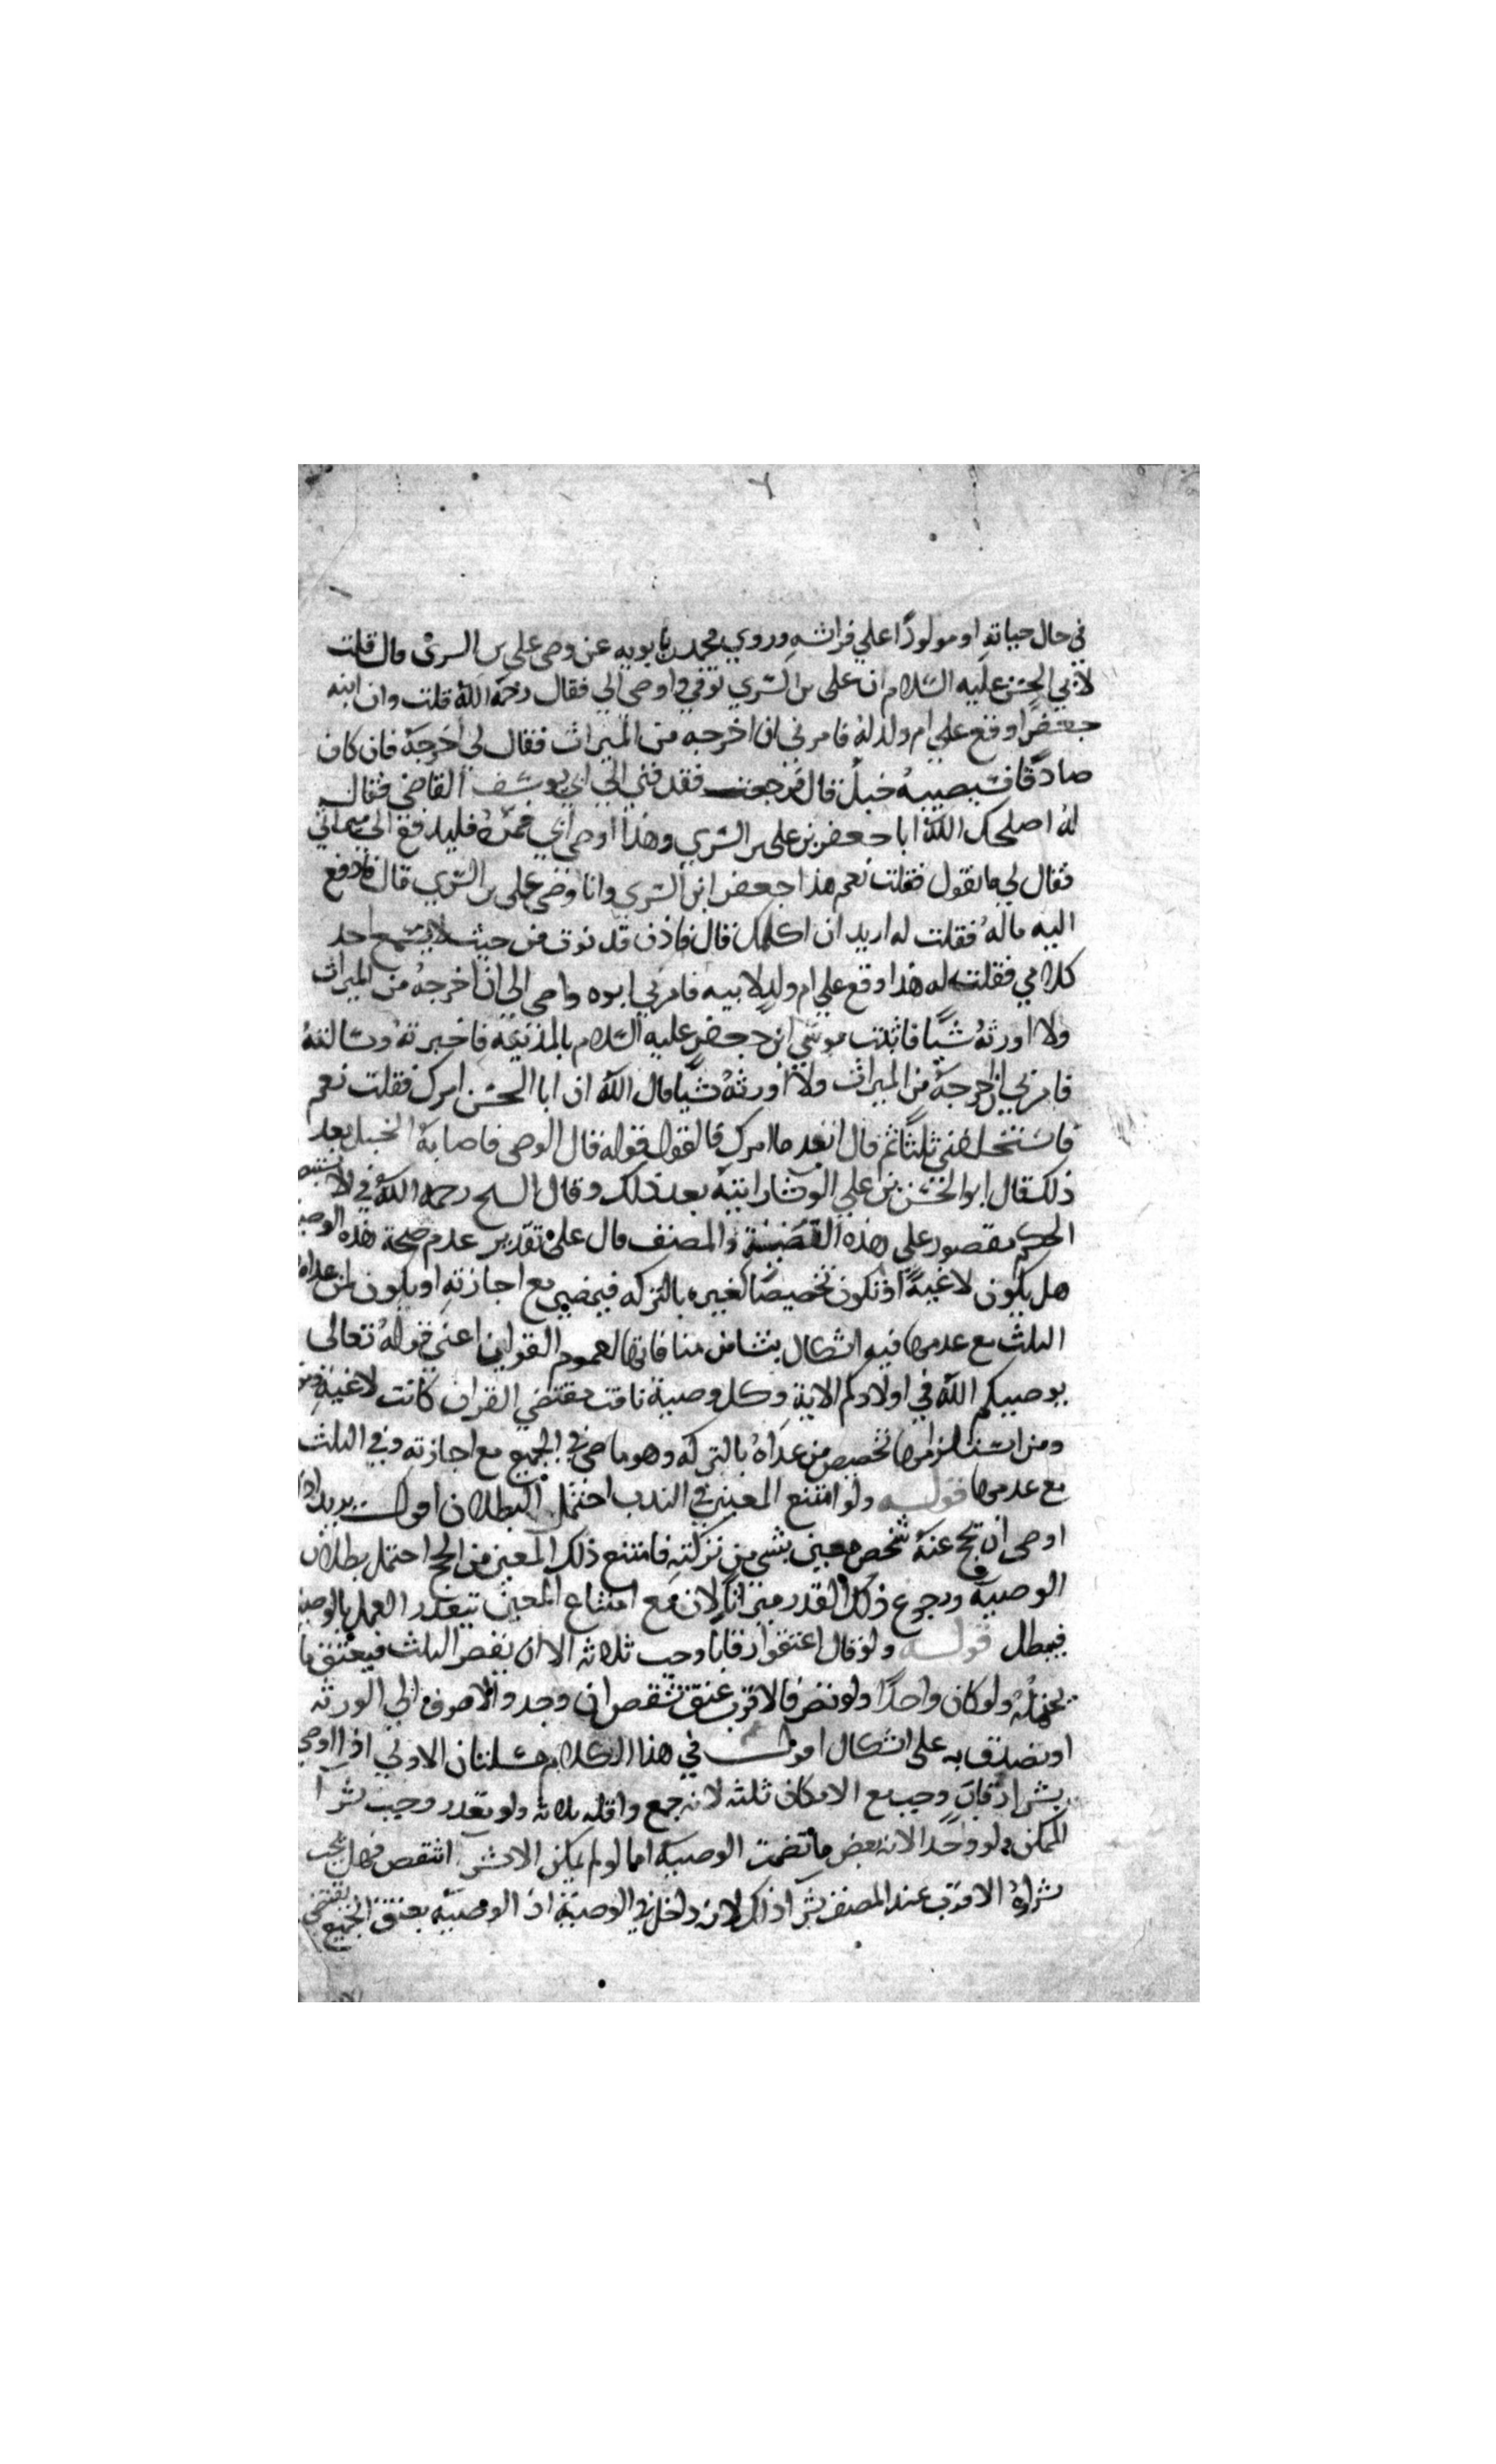 في حال حياته او مولودًا علي فراشه وروي محمد بن بابويه عن وصي علي بن السري قال قلت
لابي الحسن عليه السلام ان علي بن السري توفي واوصي الي فقال رحمه الله قلت وان ابنه
جعفرا وقع علي ام ولد له فامرني ان اخرجه من الميراث فقال لي اخرجه فان كان
صادقا فسيصيبه خبل قال فرجعت فقدمني الي ابي يوسف القاضي فقال
له اصلحك الله ابا جعفر بن علي بن السري وهذا اوصي ابي فمره فليدفع الي ميراثي
فقال لي ما تقول فقلت نعم هذا جعفر ابن السري وانا وصي علي بن السري قال فادفع
اليه ماله فقلت له اريد ان اكلمك قال فاذن فدنوت من حيث لا يسمع احد
كلامي فقلت له هذا وقع علي ام ولد لابيه فامرني ابوه واوصي الي ان اخرجه من الميراث
ولا اورثه شيًا فاتيت موسي ابن جعفر عليه السلام بالمدينة فاخبرته وسالته
فامرني ان اخرجه من الميراث ولا اورثه شيًا قال الله ان ابا الحسن امرك فقلت نعم
فاستحلفني ثلثًا ثم قال انفذ ما امرك فالقول قوله قال الوصي فاصابه الخبل بعد
ذلك قال ابو الحسن بن علي الوشا رايته بعد ذلك وقال الشيخ رحمه الله في الا
الحكم مقصور علي هذه القضية والمصنف قال علي تقدير عدم صحة هذه
هل يكون لاغيةً او تكون تخصيصًا لغيره بالتركه فيمضي مع اجازته او يكون لمن عداه
الثلث مع عدمها فيه اشكال ينشا من منافاتها لعموم القران اعني قوله تعالي
يوصيكم الله في اولادكم الاية وكل وصية نافت مقتضي القران كانت لاغية
ومن استلزامها تخصيص من عداه بالتركه وهو ماض في الجميع مع اجازته وفي الثلث
مع عدمها قوله ولو امتنع المعين في الندب احتمل البطلان اقول يريد اذا
اوصي ان يحج عنه شخص معين بشي من تركته فامتنع ذلك المعين من الحج احتمل بطلان
الوصية ورجوع ذلك القدر ميراثًا لان مع امتناع المعين يتعذر العمل بالوصية
فيبطل قوله ولو قال اعتقوا رقابا وجب ثلاثه الا ان يقصر الثلث فيعتق ما
يحتمله ولو كان واحدًا ولو نقص فالاقرب عتق شقص ان وجد والا صرف الي الورثه
او تصدق به علي اشكال اقول في هذا الكلام مسلتان الاولي اذا اوصي
بشرا رقاب وجب مع الامكان ثلثه لانه جمع واقله ثلاثه ولو تعذر وجب شرا
الممكن ولو واحدا لانه بعض ما تضمنت الوصية اما لو لم يمكن الا شرا شقص فهل يجب
شراؤه الاقرب عند المصنف شرا ذلك لانه داخل في الوصية اذ الوصية بعتق الجميع يقتضي